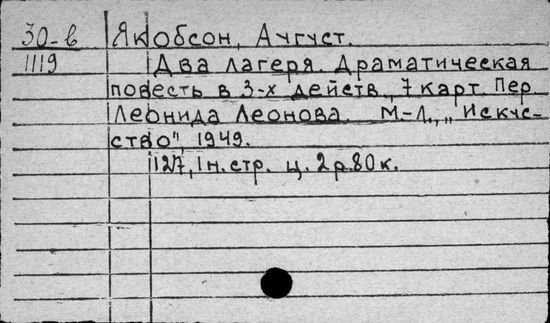 30-в Якобсон, Август.
1119 Два лагеря. Драматическая
повесть в 3-х действ., 7 карт. Пер.
Леонида Леонова. М-Л., „Искус-
ство", 1949.
127, 1 н. стр. ц. 2 р. 80 к.